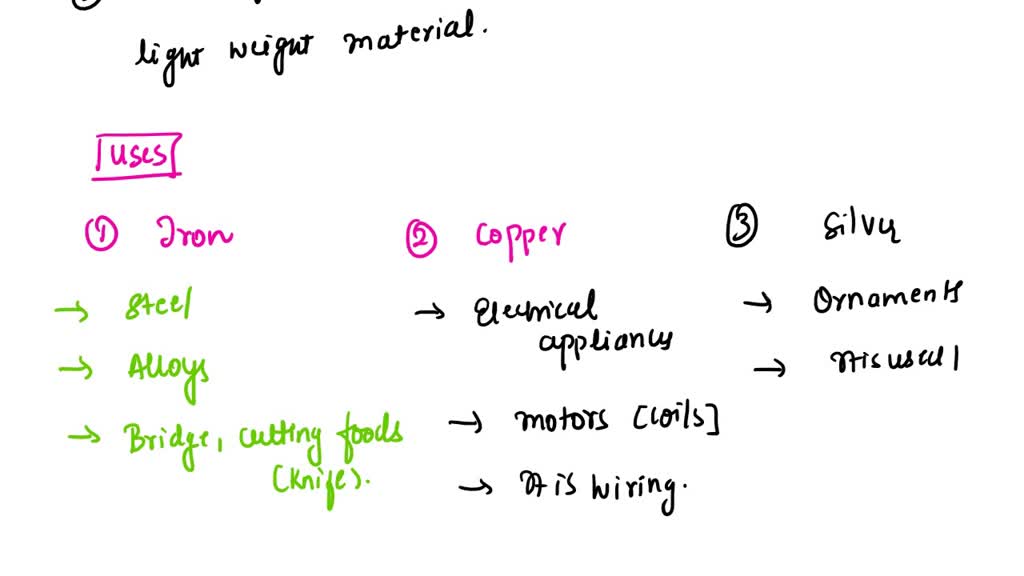 light weight material.
uses
① Iron
② copper
③ Silver
→ Steel
→ Electrical appliances
→ Ornaments
→ Alloys
→ It is used
→ Bridge, cutting foods
(knife).
→ motors [coils]
→ It is wiring.